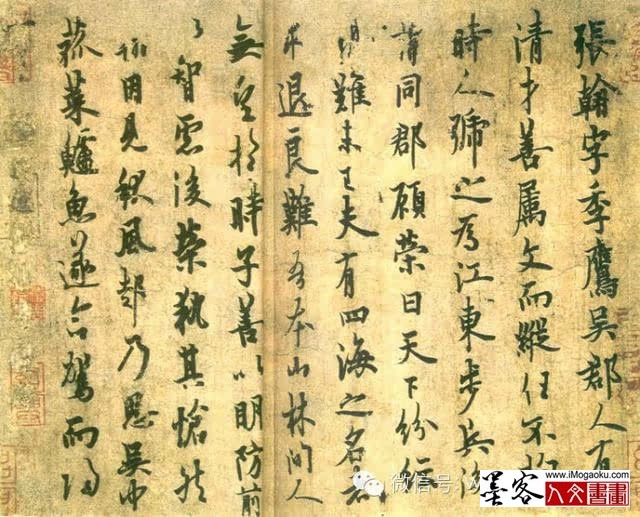 張翰字季鷹吳郡人有
清才善属文而縱任不拘
時人號之為江東步兵後
謂同郡顧榮曰天下紛紜
難未已夫有四海之名者
求退良難吾本山林間人
無望於時子善以明防前
以智慮後榮執其愴然
翰因見秋風起乃思吳中
菰菜鱸魚遂命駕而歸
微信号
www.iMogaoku.com
墨客
人文書畫